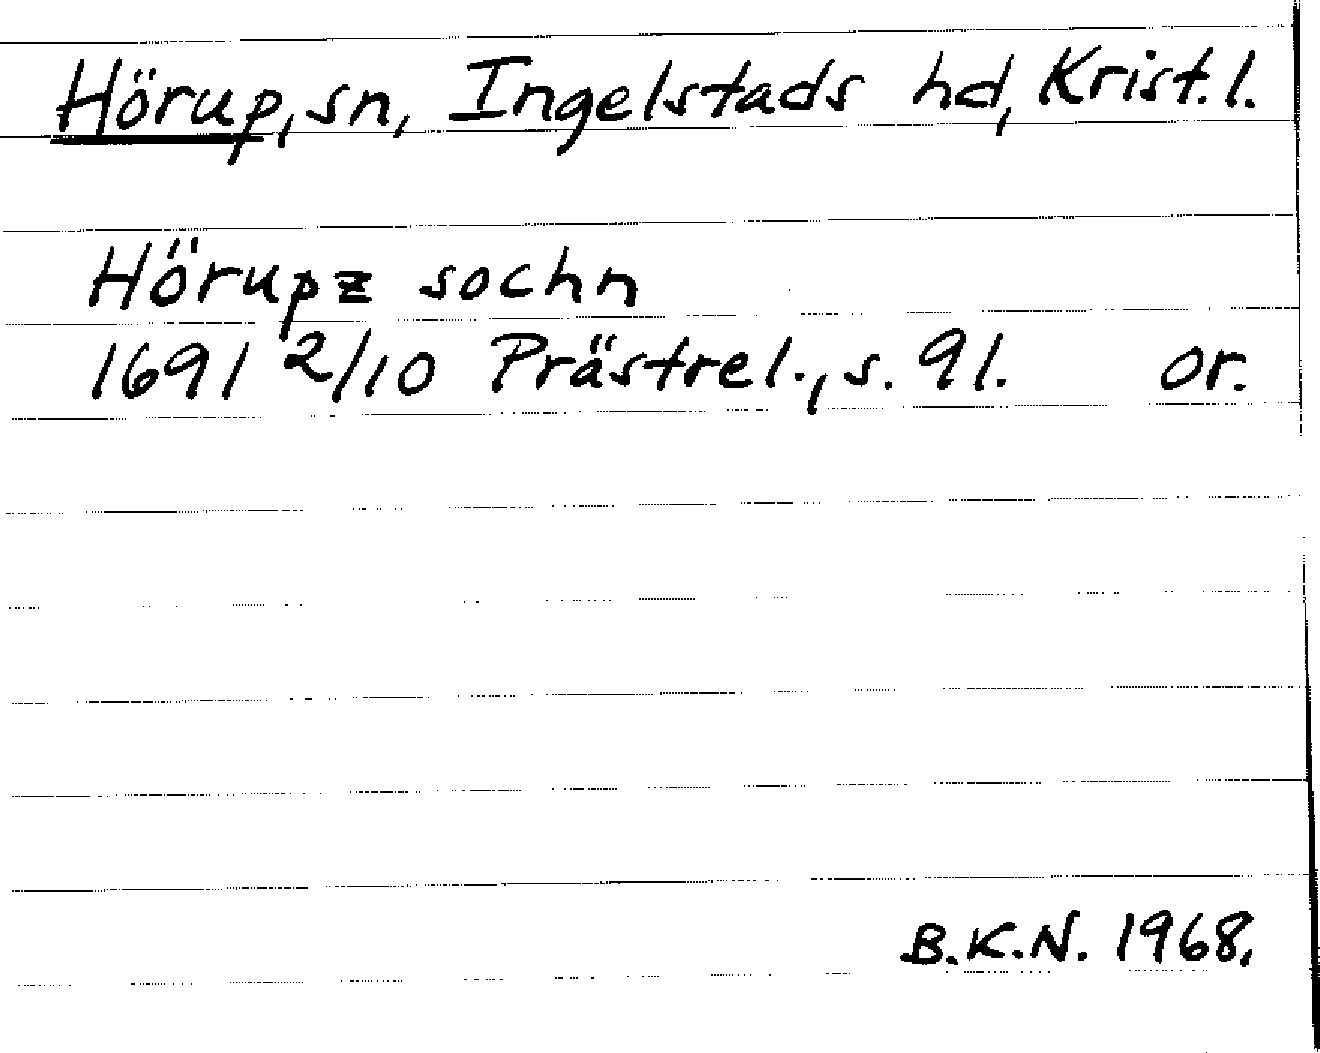 Hörup, sn, Ingelstads hd, Krist. l.
Hörupz sochn
1691 2/10 Prästrel., s. 91. or.
B.K.N. 1968.